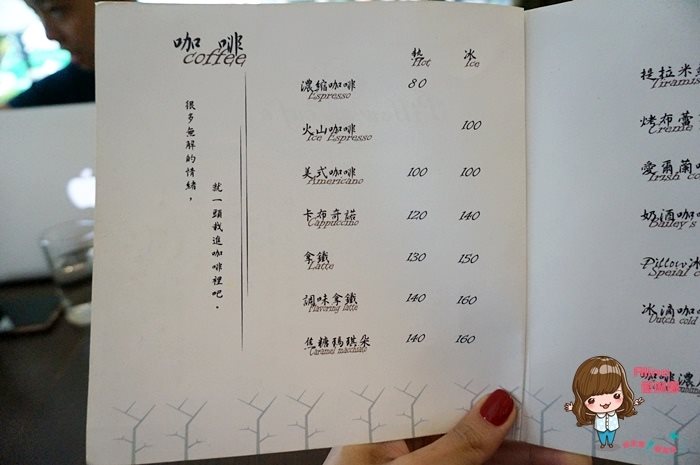 咖啡
coffee
很多無解的情緒，
就一頭栽進咖啡裡吧。
熱 冰
Hot Ice
濃縮咖啡 80
Espresso
火山咖啡 100
Ice Espresso
美式咖啡 100 100
Americano
卡布奇諾 120 140
Cappuccino
拿鐵 130 150
Latte
調味拿鐵 140 160
Flavoring latte
焦糖瑪琪朵 140 160
Caramel macchiato
提拉米
Tiramis
烤布蕾
Creme
愛爾蘭
Irish co
奶酒咖
Bailey's
Pillow冰
Speial c
冰滴咖
Dutch cold
咖啡濃